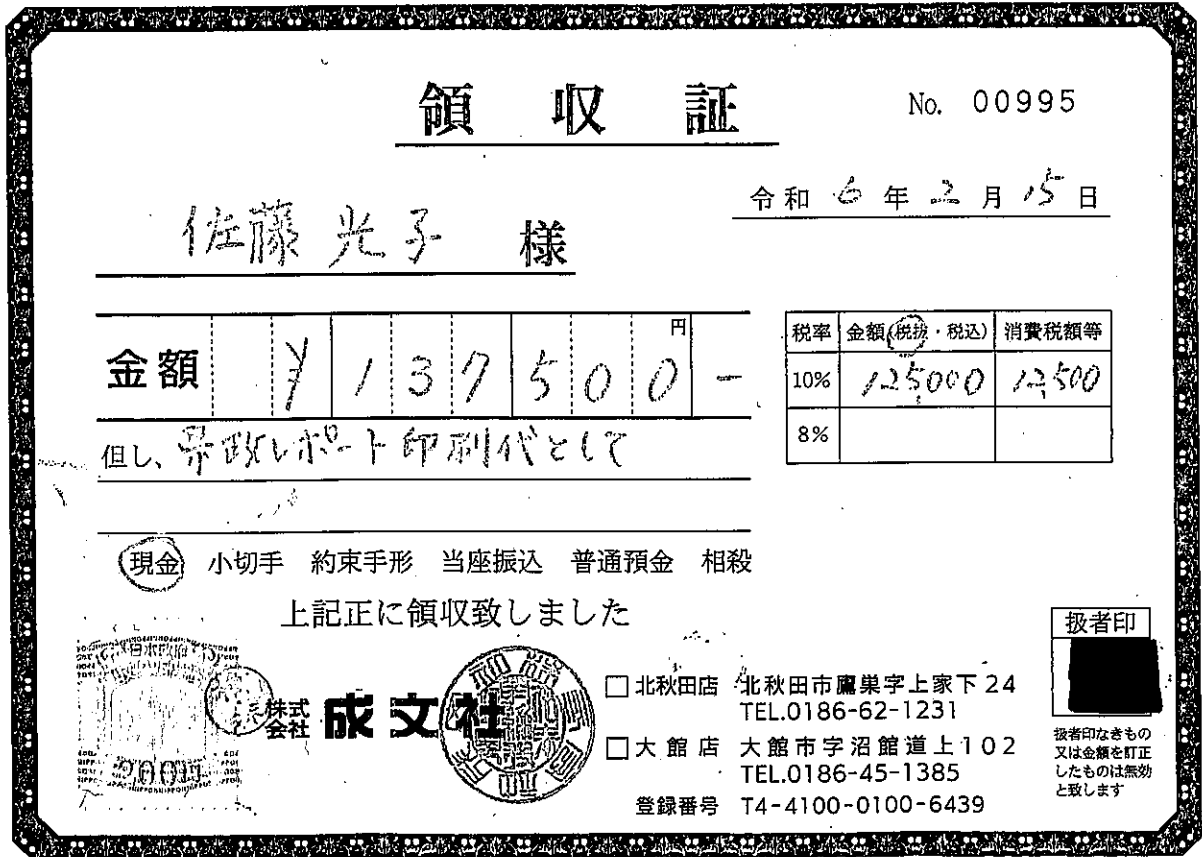 領収証
No. 00995
令和 6 年 2 月 15 日
佐藤 光子 様
金額 ¥137500円-
税率 金額(税抜・税込) 消費税額等
10% 125000 12,500
8%
但し、県政レポート印刷代として
現金 小切手 約束手形 当座振込 普通預金 相殺
上記正に領収致しました
扱者印
日本政府
200円
株式会社 成文社
□北秋田店 北秋田市鷹巣字上家下24
TEL.0186-62-1231
□大館店 大館市字沼館道上102
TEL.0186-45-1385
登録番号 T4-4100-0100-6439
扱者印なきもの
又は金額を訂正
したものは無効
と致します